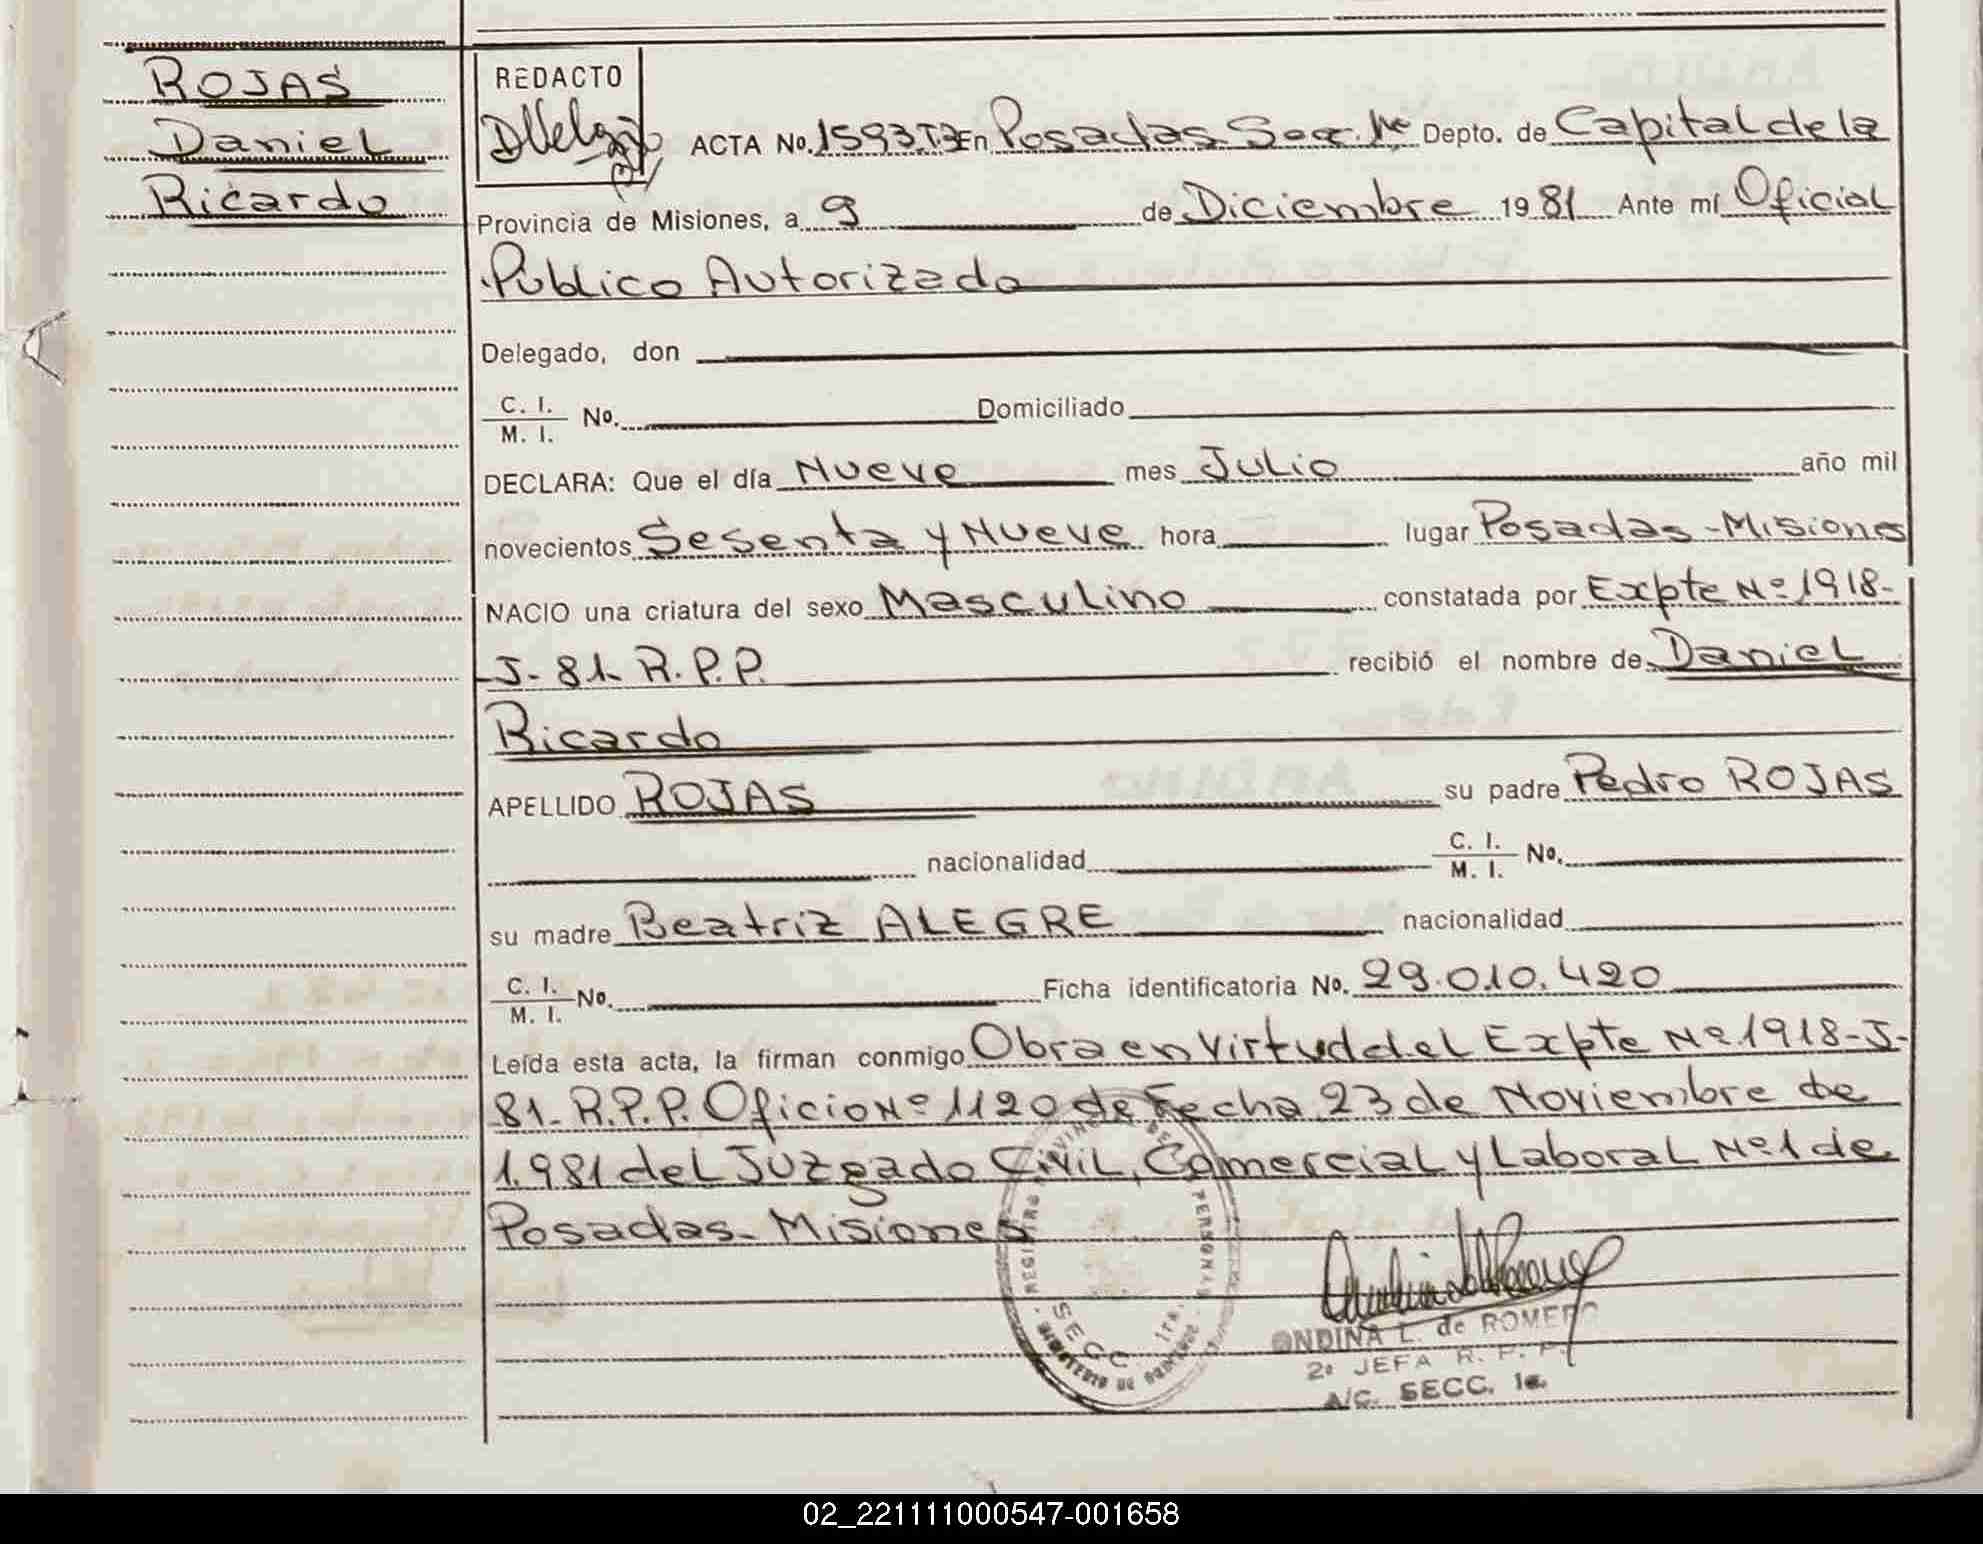 ROJAS
Daniel
Ricardo
REDACTO
ACTA No. 1593 T3 En Posadas Secc. 1ra Depto. de Capital de la
Provincia de Misiones, a 9 de Diciembre 1981 Ante mí Oficial
Público Autorizado
Delegado, don
C. I. / M. I. No. Domiciliado
DECLARA: Que el día Nueve mes Julio año mil
novecientos Sesenta y Nueve hora lugar Posadas - Misiones
NACIO una criatura del sexo Masculino constatada por Expte Nº 1918-
J- 81- R.P.P. recibió el nombre de Daniel
Ricardo
APELLIDO ROJAS su padre Pedro ROJAS
nacionalidad C. I. / M. I. No.
su madre Beatriz ALEGRE nacionalidad
C. I. / M. I. No. Ficha identificatoria No. 29.010.420
Leída esta acta, la firman conmigo Obra en Virtud del Expte Nº 1918-J-
81- R.P.P. Oficio Nº 1120 de Fecha 23 de Noviembre de
1.981 del Juzgado Civil, Comercial y Laboral Nº 1 de
Posadas- Misiones
SECC. 1ra.
ONDINA L. de ROMERO
2ª JEFA R. P. P.
A/C. SECC. 1a.
02_221111000547-001658